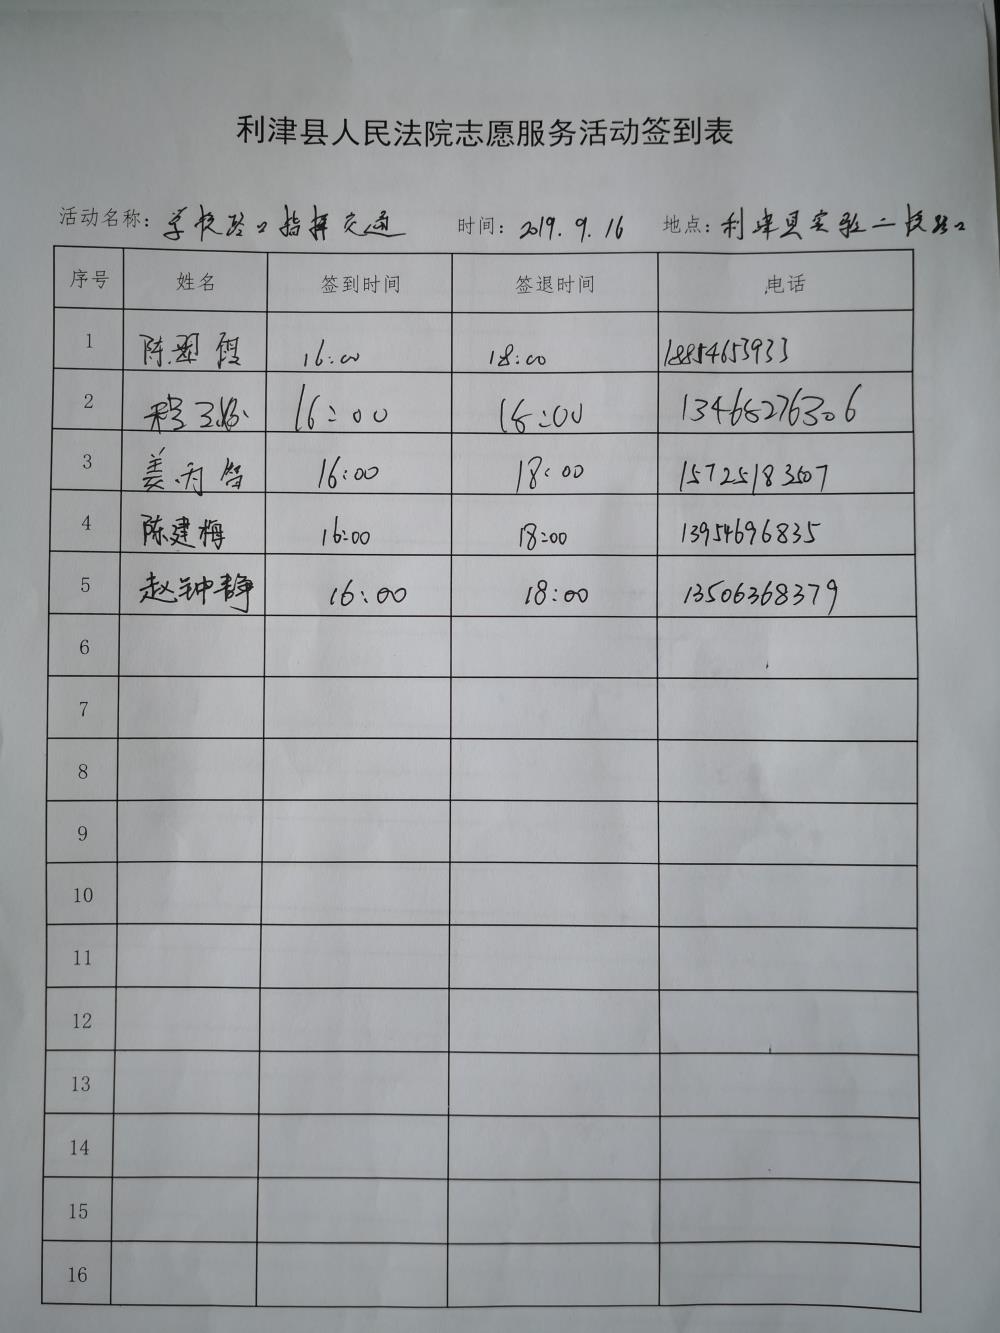 利津县人民法院志愿服务活动签到表
活动名称：学校路口指挥交通 时间：2019.9.16 地点：利津县实验二校路口
序号 姓名 签到时间 签退时间 电话
1 陈翠霞 16:00 18:00 18854653933
2 程 16:00 18:00 13468276306
3 姜丙智 16:00 18:00 15725183507
4 陈建梅 16:00 18:00 13954696835
5 赵钟静 16:00 18:00 13506368379
6
7
8
9
10
11
12
13
14
15
16